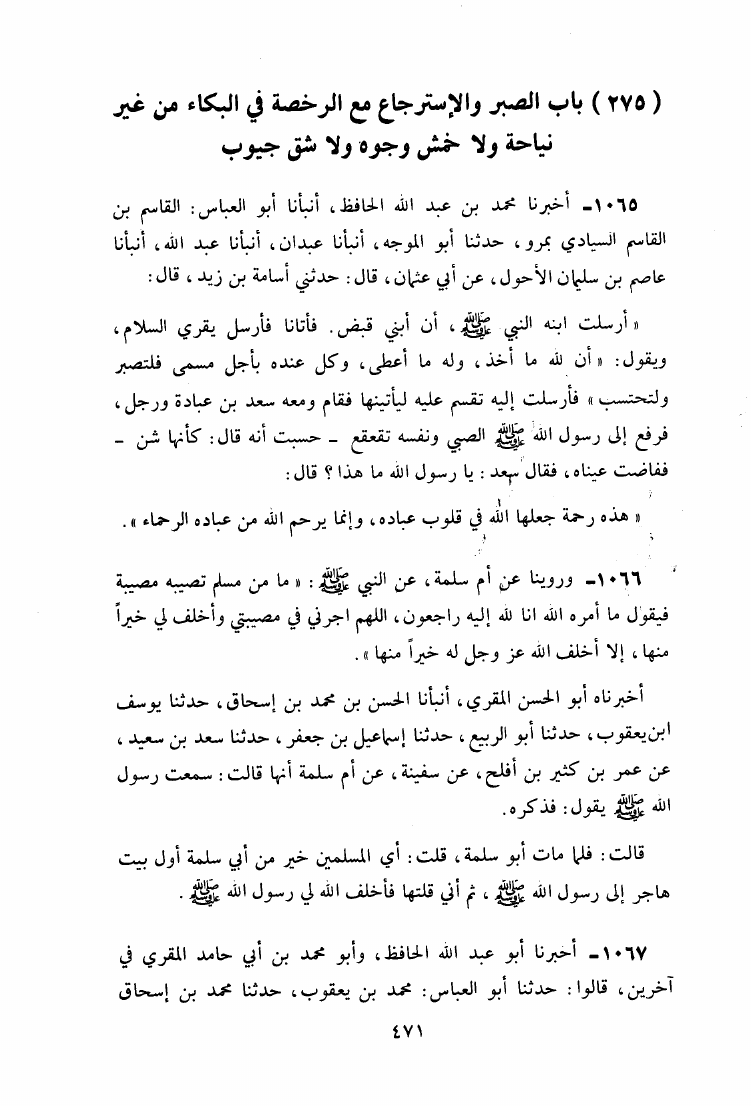 ( ٢٧٥ ) باب الصبر والإسترجاع مع الرخصة في البكاء من غير
نياحة ولا خمش وجوه ولا شق جيوب
١٠٦٥- أخبرنا محمد بن عبد الله الحافظ، أنبأنا أبو العباس: القاسم بن
القاسم السيادي بمرو، حدثنا أبو الموجه، أنبأنا عبدان، أنبأنا عبد الله، أنبأنا
عاصم بن سليمان الأحول، عن أبي عثمان، قال: حدثني أسامة بن زيد، قال:
« أرسلت ابنه النبي ﷺ، أن أبني قبض. فأتانا فأرسل يقري السلام،
ويقول: « أن لله ما أخذ، وله ما أعطى، وكل عنده بأجل مسمى فلتصبر
ولتحتسب » فأرسلت إليه تقسم عليه ليأتينها فقام ومعه سعد بن عبادة ورجل،
فرفع إلى رسول الله ﷺ الصبي ونفسه تقعقع - حسبت أنه قال: كأنها شن -
ففاضت عيناه، فقال سعد: يا رسول الله ما هذا؟ قال:
« هذه رحمة جعلها الله في قلوب عباده، وإنما يرحم الله من عباده الرحماء ».
١٠٦٦- وروينا عن أم سلمة، عن النبي ﷺ: « ما من مسلم تصيبه مصيبة
فيقول ما أمره الله انا لله إليه راجعون، اللهم اجرني في مصيبتي وأخلف لي خيراً
منها، إلا أخلف الله عز وجل له خيراً منها ».
أخبرناه أبو الحسن المقري، أنبأنا الحسن بن محمد بن إسحاق، حدثنا يوسف
ابن يعقوب، حدثنا أبو الربيع، حدثنا إسماعيل بن جعفر، حدثنا سعد بن سعيد،
عن عمر بن كثير بن أفلح، عن سفينة، عن أم سلمة أنها قالت: سمعت رسول
الله ﷺ يقول: فذكره.
قالت: فلما مات أبو سلمة، قلت: أي المسلمين خير من أبي سلمة أول بيت
هاجر إلى رسول الله ﷺ، ثم أني قلتها فأخلف الله لي رسول الله ﷺ.
١٠٦٧- أخبرنا أبو عبد الله الحافظ، وأبو محمد بن أبي حامد المقري في
آخرين، قالوا: حدثنا أبو العباس: محمد بن يعقوب، حدثنا محمد بن إسحاق
٤٧١